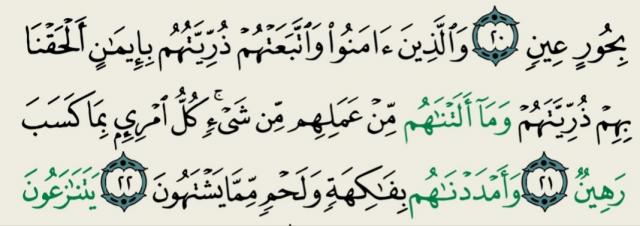 بِحُورٍ عِينٍ ٢٠ وَٱلَّذِينَ ءَامَنُوا۟ وَٱتَّبَعَتْهُمْ ذُرِّيَّتُهُم بِإِيمَٰنٍ أَلْحَقْنَا
بِهِمْ ذُرِّيَّتَهُمْ وَمَآ أَلَتْنَٰهُم مِّنْ عَمَلِهِم مِّن شَىْءٍۚ كُلُّ ٱمْرِئٍۭ بِمَا كَسَبَ
رَهِينٌ ٢١ وَأَمْدَدْنَٰهُم بِفَٰكِهَةٍ وَلَحْمٍ مِّمَّا يَشْتَهُونَ ٢٢ يَتَنَٰزَعُونَ